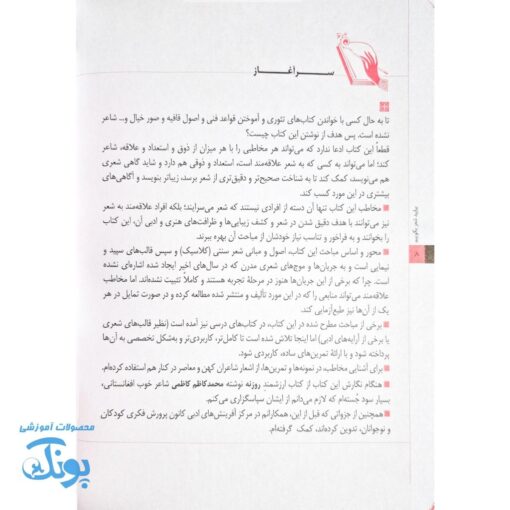 سرآغاز
تا به حال کسی با خواندن کتاب‌های تئوری و آموختن قواعد فنی و اصول قافیه و صور خیال و... شاعر
نشده است. پس هدف از نوشتن این کتاب چیست؟
قطعاً این کتاب ادعا ندارد که می‌تواند هر مخاطبی را با هر میزان از ذوق و استعداد و علاقه، شاعر
کند؛ اما می‌تواند به کسی که به شعر علاقه‌مند است، استعداد و ذوقی هم دارد و شاید گاهی شعری
هم می‌نویسد، کمک کند تا به شناخت صحیح‌تر و دقیق‌تری از شعر برسد، زیباتر بنویسد و آگاهی‌های
بیشتری در این مورد کسب کند.
مخاطب این کتاب تنها آن دسته از افرادی نیستند که شعر می‌سرایند؛ بلکه افراد علاقه‌مند به شعر
نیز می‌توانند با هدف دقیق شدن در شعر و کشف زیبایی‌ها و ظرافت‌های هنری و ادبی آن، این کتاب
را بخوانند و به فراخور و تناسب نیاز خودشان از مباحث آن بهره ببرند.
محور و اساس مباحث این کتاب، اصول و مبانی شعر سنتی (کلاسیک) و سپس قالب‌های سپید و
نیمایی است و به جریان‌ها و موج‌های شعری مدرن که در سال‌های اخیر ایجاد شده اشاره‌ای نشده
است. چرا که برخی از این جریان‌ها هنوز در مرحلهٔ تجربه هستند و کاملاً تثبیت نشده‌اند، اما مخاطب
علاقه‌مند می‌تواند منابعی را که در این مورد تألیف و منتشر شده مطالعه کرده و در صورت تمایل در هر
یک از آن‌ها نیز طبع‌آزمایی کند.
برخی از مباحث مطرح شده در این کتاب، در کتاب‌های درسی نیز آمده است (نظیر قالب‌های شعری
یا برخی از آرایه‌های ادبی) اما اینجا تلاش شده است تا کامل‌تر، کاربردی‌تر و به‌شکل تخصصی به آن‌ها
پرداخته شود و با ارائهٔ تمرین‌های ساده، کاربردی شود.
برای آشنایی مخاطب، در نمونه‌ها و تمرین‌ها، از اشعار شاعران کهن و معاصر در کنار هم استفاده کرده‌ام.
هنگام نگارش این کتاب از کتاب ارزشمند روزنه نوشته محمدکاظم کاظمی شاعر خوب افغانستانی،
بسیار سود جُسته‌ام که لازم می‌دانم از ایشان سپاسگزاری می‌کنم.
همچنین از جزواتی که قبل از این، همکارانم در مرکز آفرینش‌های ادبی کانون پرورش فکری کودکان
و نوجوانان، تدوین کرده‌اند، کمک گرفته‌ام.
بیایید شعر بگوییم
۸
محصولات آموزشی
پونک